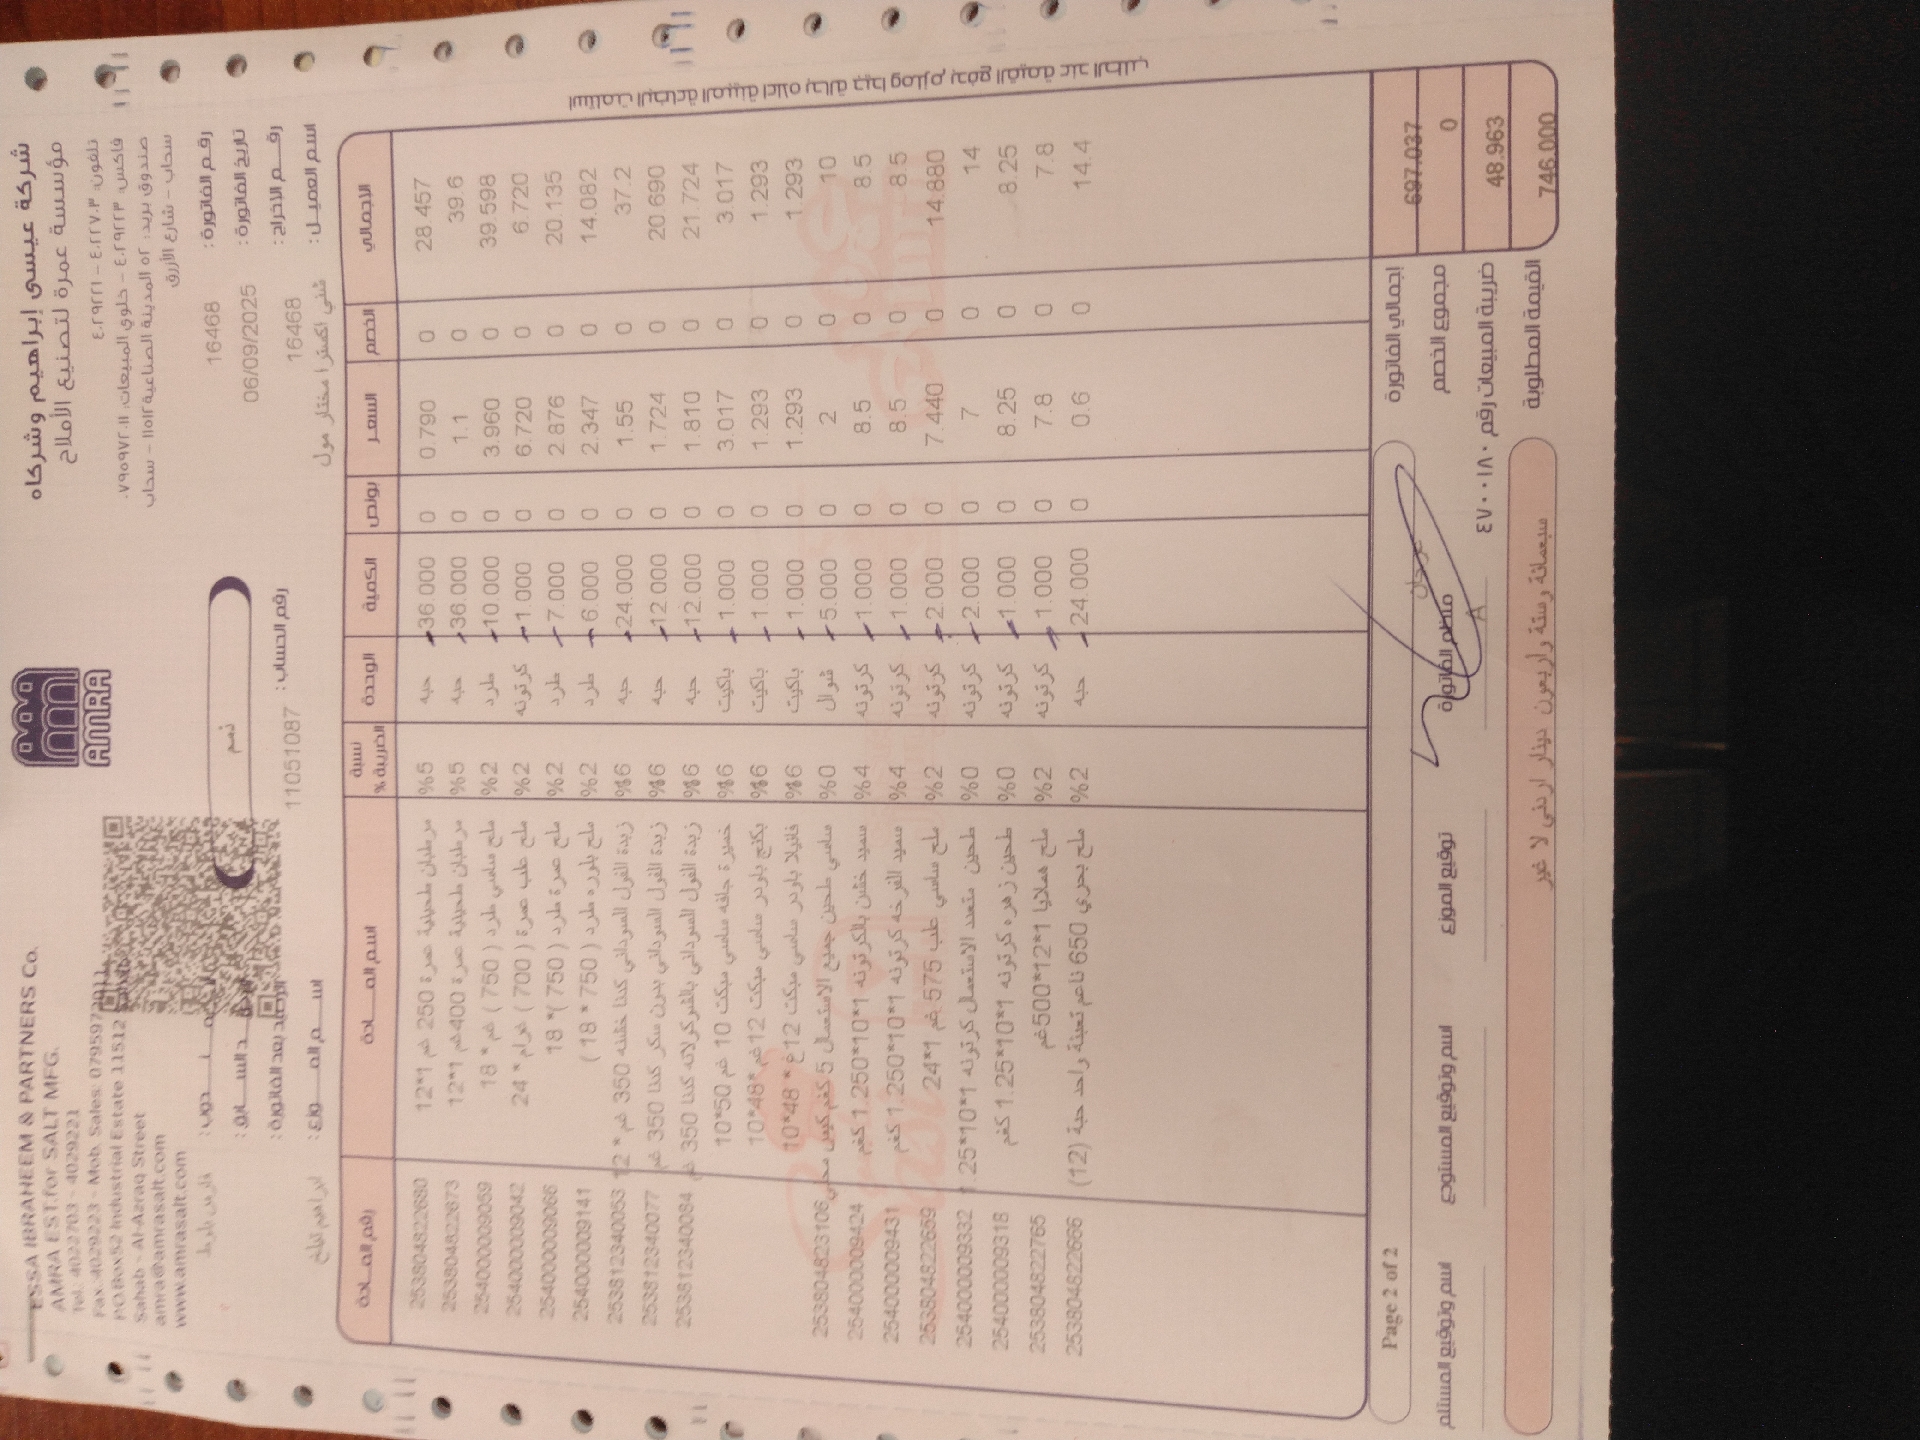 شركة عيسى إبراهيم وشركاه
مؤسسة عمرة لتصنيع الأملاح
تلفون: ٤٠٢٢٧٠٣ - ٤٠٢٩٢٢١
فاكس: ٤٠٢٩٢٢٣ - خلوي المبيعات: ٠٧٩٥٩٧٢٠١١
صندوق بريد: ٥٢ المدينة الصناعية ١١٥١٢ - سحاب
سحاب - شارع الأزرق
AMRA
ESSA IBRAHEEM & PARTNERS Co.
AMRA EST.for SALT MFG.
Tel: 4022703 - 4029221
Fax:4029223 - Mob. Sales: 0795972011
P.O.Box52 Industrial Estate 11512
Sahab - Al-Azraq Street
amra@amrasalt.com
www.amrasalt.com
رقم الفاتورة : 16468
تاريخ الفاتورة : 06/09/2025
رقم الإخراج : 16468
اسم العميل : شني اكسترا مختار مول
ذمم
رقم الحساب : 11051087
الرصيد بعد الفاتورة :
اسم الموزع : ابراهيم
رقم المادة اسم المادة نسبة الضريبة % الوحدة الكمية بونص السعر الخصم الإجمالي
2538048822680 مرطبان طحينية عمرة 250 غم 1*12 %5 حبه 36.000 0 0.790 0 28.457
2538048822673 مرطبان طحينية عمرة 400غم 1*12 %5 حبه 36.000 0 1.1 0 39.6
2540000009059 ملح ساسي طرد ( 750 ) غم * 18 %2 طرد 10.000 0 3.960 0 39.598
2540000009042 ملح علب عمرة ( 700 ) غرام * 24 %2 كرتونه 1.000 0 6.720 0 6.720
2540000009066 ملح عمرة طرد ( 750 )* 18 %2 طرد 7.000 0 2.876 0 20.135
2540000009141 ملح بلوره طرد ( 750 * 18 ) %2 طرد 6.000 0 2.347 0 14.082
253812340053 زبدة الفول السوداني كندا خشنه 350 غم * 12 %16 حبه 24.000 0 1.55 0 37.2
2538123400077 زبدة الفول السوداني بدون سكر كندا 350 غم %16 حبه 12.000 0 1.724 0 20.690
2538123400084 زبدة الفول السوداني بالشوكولاته كندا 350 غم %16 حبه 12.000 0 1.810 0 21.724
خميرة جافه ساسي مبكت 10 غم 50*10 %16 باكيت 1.000 0 3.017 0 3.017
بكنج باودر ساسي مبكت 12غم *48*10 %16 باكيت 1.000 0 1.293 0 1.293
فانيلا باودر ساسي مبكت 12غ * 48*10 %16 باكيت 1.000 0 1.293 0 1.293
2538048823106 ساسي طحين جميع الاستعمال 5 كغم كيس %0 شوال 5.000 0 2 0 10
2540000009424 سميد خشن بالكرتونه 1*10*1.250 كغم %4 كرتونه 1.000 0 8.5 0 8.5
2540000009431 سميد الفرخه كرتونه 1*10*1.250 كغم %4 كرتونه 1.000 0 8.5 0 8.5
2538048822659 ملح ساسي علب 575 غم 1*24 %2 كرتونه 2.000 0 7.440 0 14.880
2540000009332 طحين متعدد الاستعمال كرتونه 1*10*1.25 %0 كرتونه 2.000 0 7 0 14
2540000009318 طحين زهره كرتونه 1*10*1.25 كغم %0 كرتونه 1.000 0 8.25 0 8.25
2538048822765 ملح هملايا 1*12*500غم %2 كرتونه 1.000 0 7.8 0 7.8
2538048822666 ملح بحري 650 ناعم تعبئة واحد حبة (12) %2 حبه 24.000 0 0.6 0 14.4
استلمت البضاعة المبينة اعلاه بحالة جيدة وملزوم بدفع القيمة عند الطلب
Page 2 of 2
إجمالي الفاتورة 697.037
مجموع الخصم 0
ضريبة المبيعات رقم ٤٧٠٠١٨٠ 48.963
القيمة المطلوبة 746.000
منظم الفاتورة
توقيع الموزع
اسم وتوقيع المستودع
اسم وتوقيع المستلم
سبعمائة وستة واربعون دينار اردني لا غير